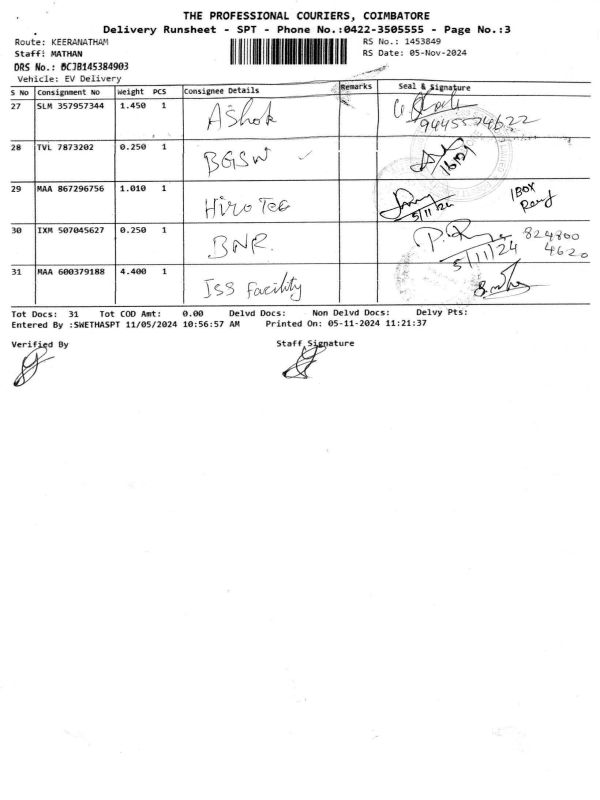 THE PROFESSIONAL COURIERS, COIMBATORE
Delivery Runsheet - SPT - Phone No.:0422-3505555 - Page No.:3
Route: KEERANATHAM RS No.: 1453849
Staff: MATHAN RS Date: 05-Nov-2024
DRS No.: BCJB145384903
Vehicle: EV Delivery
S No Consignment No Weight PCS Consignee Details Remarks Seal & Signature
27 SLM 357957344 1.450 1 Ashok
28 TVL 7873202 0.250 1 BGSW
29 MAA 867296756 1.010 1 Hiro Tec 5/11/24 1BOX
30 IXM 507045627 0.250 1 BNR. 5/11/24 824800
4620
31 MAA 600379188 4.400 1 ISS Facility
Tot Docs: 31 Tot COD Amt: 0.00 Delvd Docs: Non Delvd Docs: Delvy Pts:
Entered By :SWETHASPT 11/05/2024 10:56:57 AM Printed On: 05-11-2024 11:21:37
Verified By Staff Signature